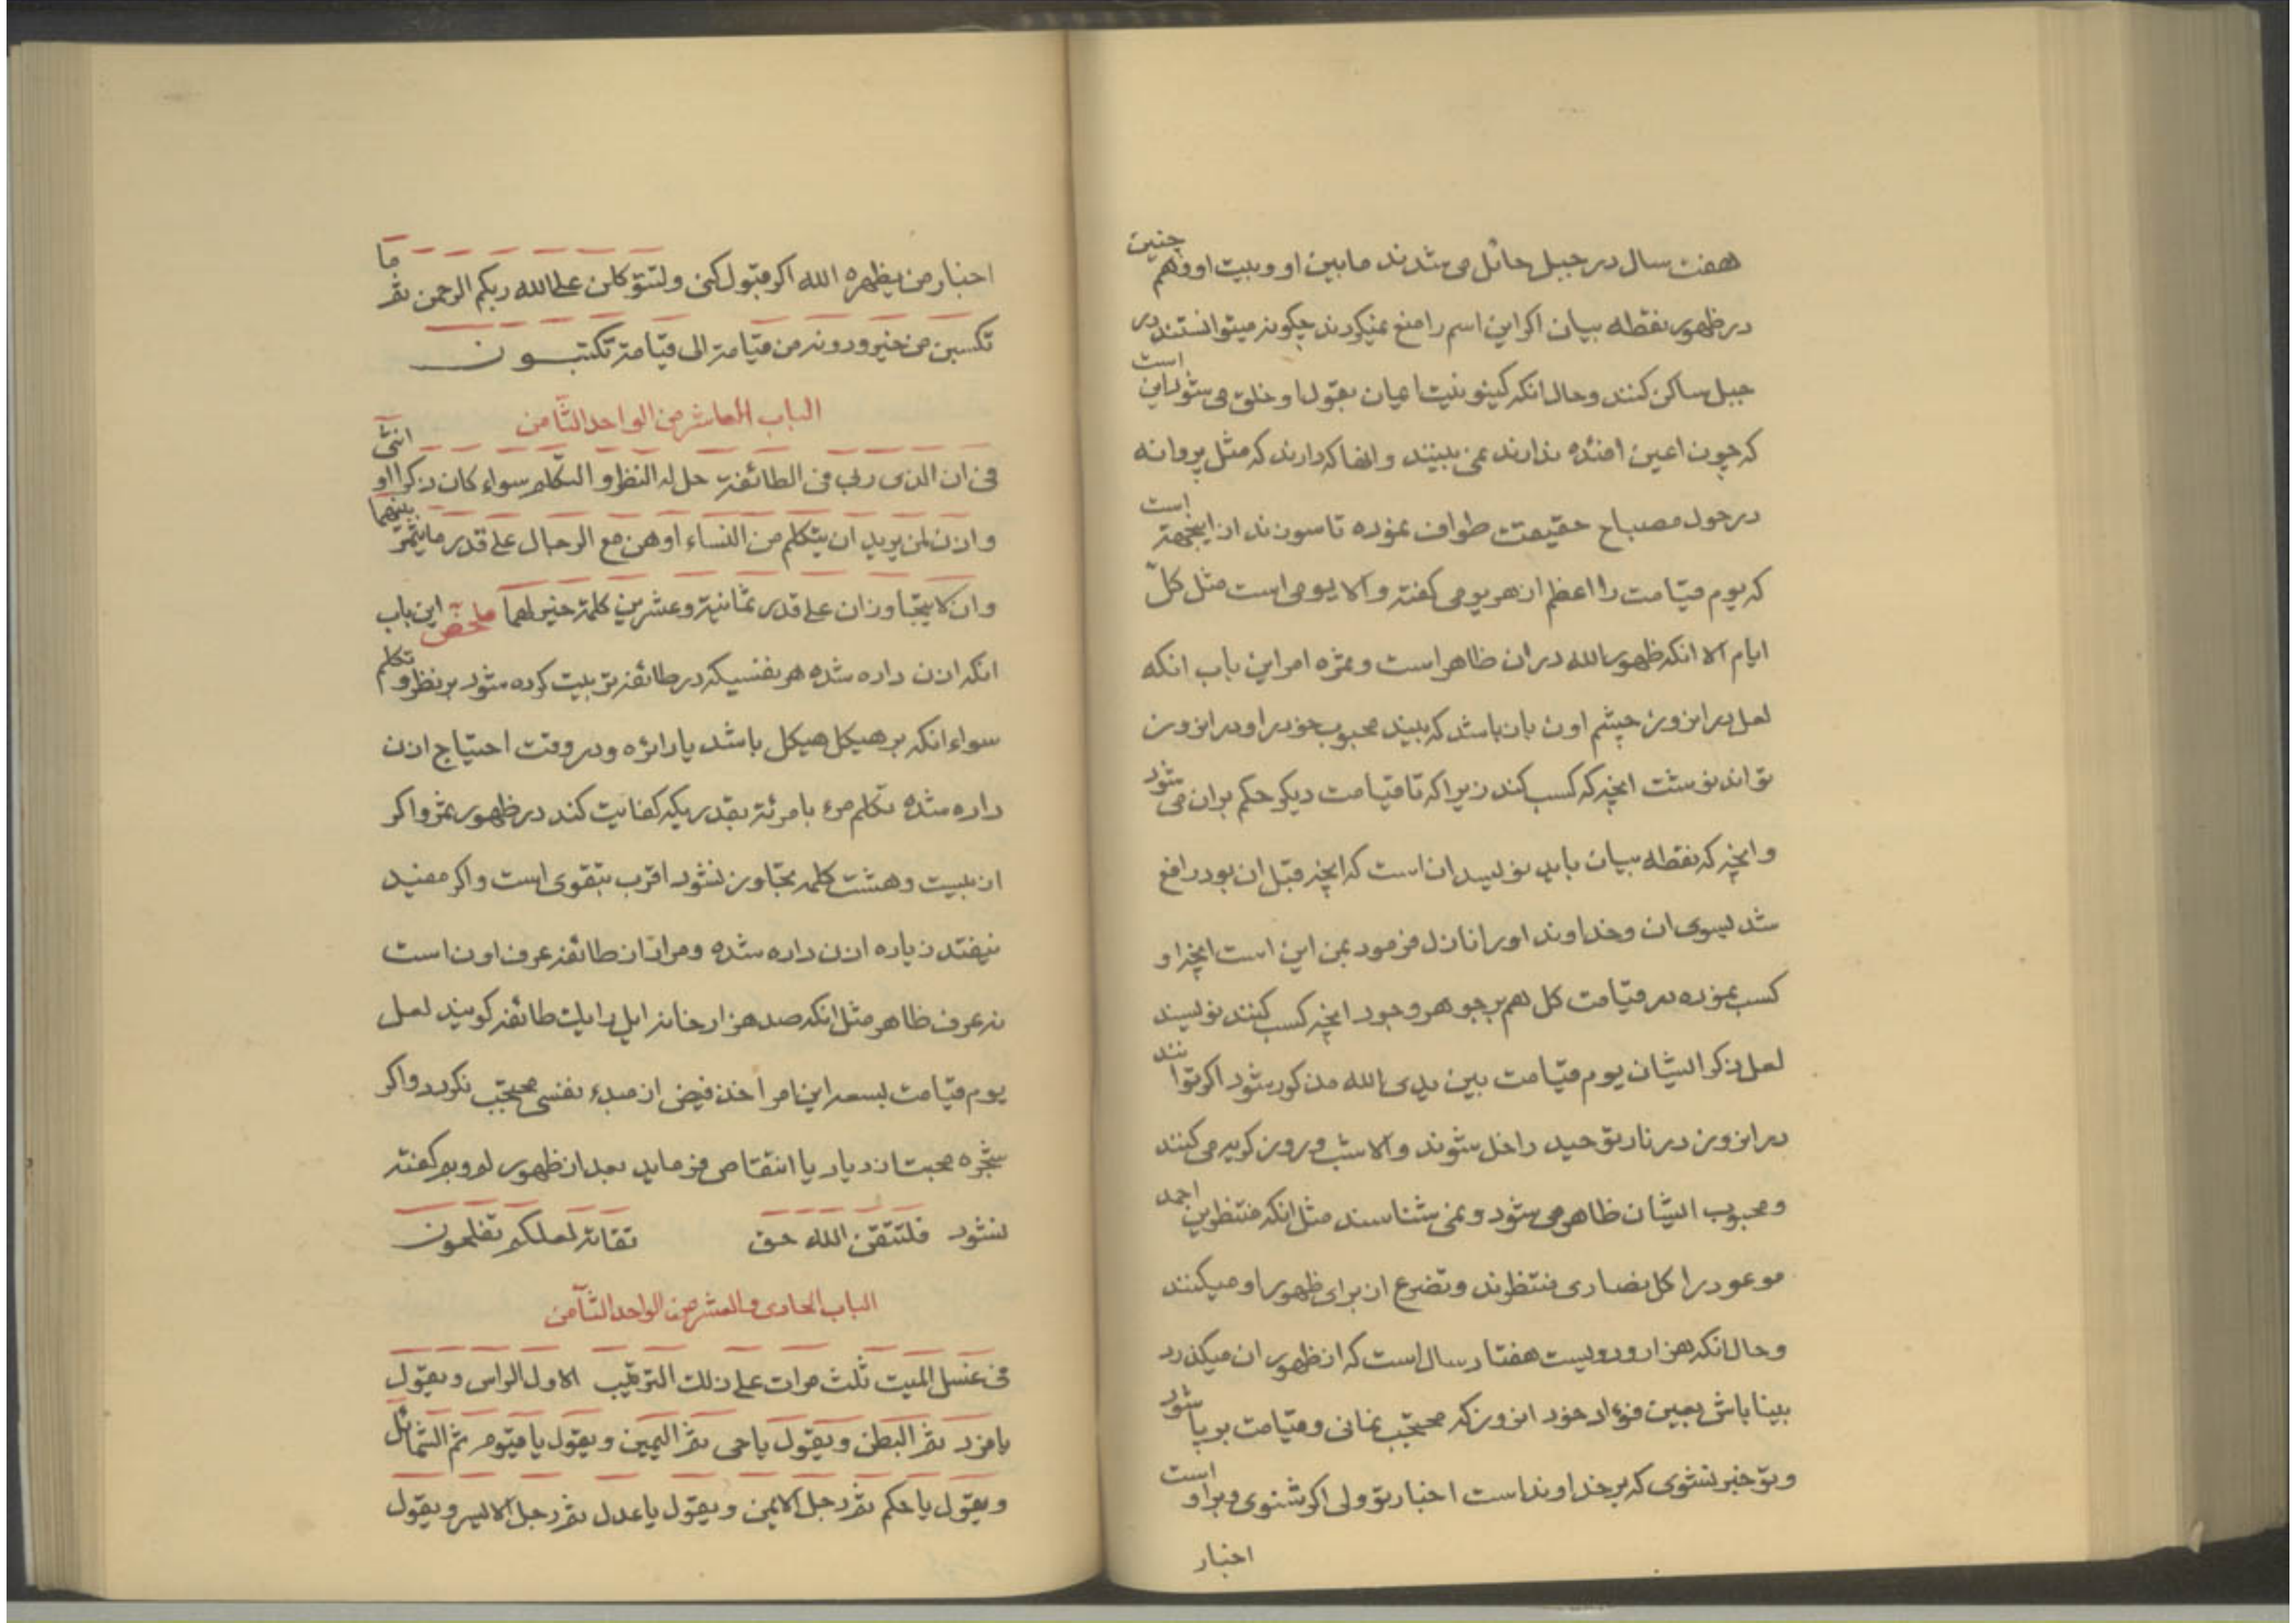 هفت سال در جبل حائل می شدند مابین او و بیت او و هم چنین
در ظهور نقطه بیان اکر این اسم را منع نمیکردند چکونه میتوانستند در
جبل ساکن کنند و حال انکه کینونیت اعیان بقول او خلق می شود این است
که چون اعین افئده ندارند نمی بینند و انها که دارند که مثل پروانه
در حول مصباح حقیقت طواف نموده تا سوزند از اینجهة است
که یوم قیامت را اعظم از هر یومی کفته والا یومی است مثل کل
ایام الا انکه ظهور الله در ان ظاهر است و ثمره امر این باب انکه
لعل در انروز چشم اون بان باشد که بیند محبوب خود را و در انروز
تواند نوشت انچه که کسب کند زیرا که تا قیامت دیکر حکم بران می شود
و انچه که نقطه بیان باید نویسد ان است که انچه قبل ان بود رافع
شد بسوی ان و خداوند او را نازل فرمود بمن این است انچه او
کسب نموده در قیامت کل هم بر جوهر وجود انچه کسب کنند نویسند
لعل ذکر ایشان یوم قیامت بین یدی الله مذکور شود اکر توانند
در انروز در نار توحید داخل شوند والا شب و روز کریه می کنند
و محبوب ایشان ظاهر می شود و نمی شناسند مثل انکه منتظرین احمد
موعود را کل نصاری منتظرند و تضرع از برای ظهور او میکنند
و حال انکه هزار و دویست هفتاد سال است که از ظهور ان میکذرد
بینا باش بعین فؤاد خود انروز که محتجب نمانی و قیامت بر پا شود
و تو خبر نشوی که بر خداوند است اخبار تو ولی اکر شنوی و بر او است
اخبار
اخبار من یظهره الله اکر قبول کنی ولتتوکلن علی الله ربکم الرحمن ثم ما
تکسبن من خیر ودونه من قیامة الی قیامة تکتبون
الباب العاشر من الواحد الثامن
فی ان الذی ربی فی الطائفة حل له النظر و التکلم سواء کان ذکرا او انثی
واذن لمن یرید ان یتکلم من النساء او هن مع الرجال علی قدر ما یثمر بینهما
وان لا یتجاوزان علی قدر ثمانیة وعشرین کلمة خیر لهما ملخص این باب
انکه اذن داده شده هر نفسیکه در طائفه تربیت کرده شود بر نظر و تکلم
سواء انکه بر هیکل هیکل باشد یا دائره و در وقت احتیاج اذن
داده شده تکلم مرء با مرئة بقدریکه کفایت کند در ظهور ثمر و اکر
از بیست و هشت کلمه تجاوز نشود اقرب بتقوی است و اکر مفید
نیفتد زیاده اذن داده شده و مراد از طائفه عرف اون است
نه عرف ظاهر مثل انکه صد هزار خانه ایل را یک طائفه کویند لعل
یوم قیامت بسعه این امر اخذ فیض از مبدء نفسی محتجب نکردد و اکر
شجره محبت ازدیاد یا انتقاص فرماید بعد از ظهور لم و بم کفته
نشود فلتتقن الله حق تقاته لعلکم تفلحون
الباب الحادی والعشر من الواحد الثامن
فی غسل المیت ثلث مرات علی ذلک الترتیب الاول الراس و یقول
یا فرد ثم البطن و یقول یا حی ثم الیمین و یقول یا قیوم ثم الشمائل
و یقول یا حکم ثم رجل الایمن و یقول یا عدل ثم رجل الایسر و یقول